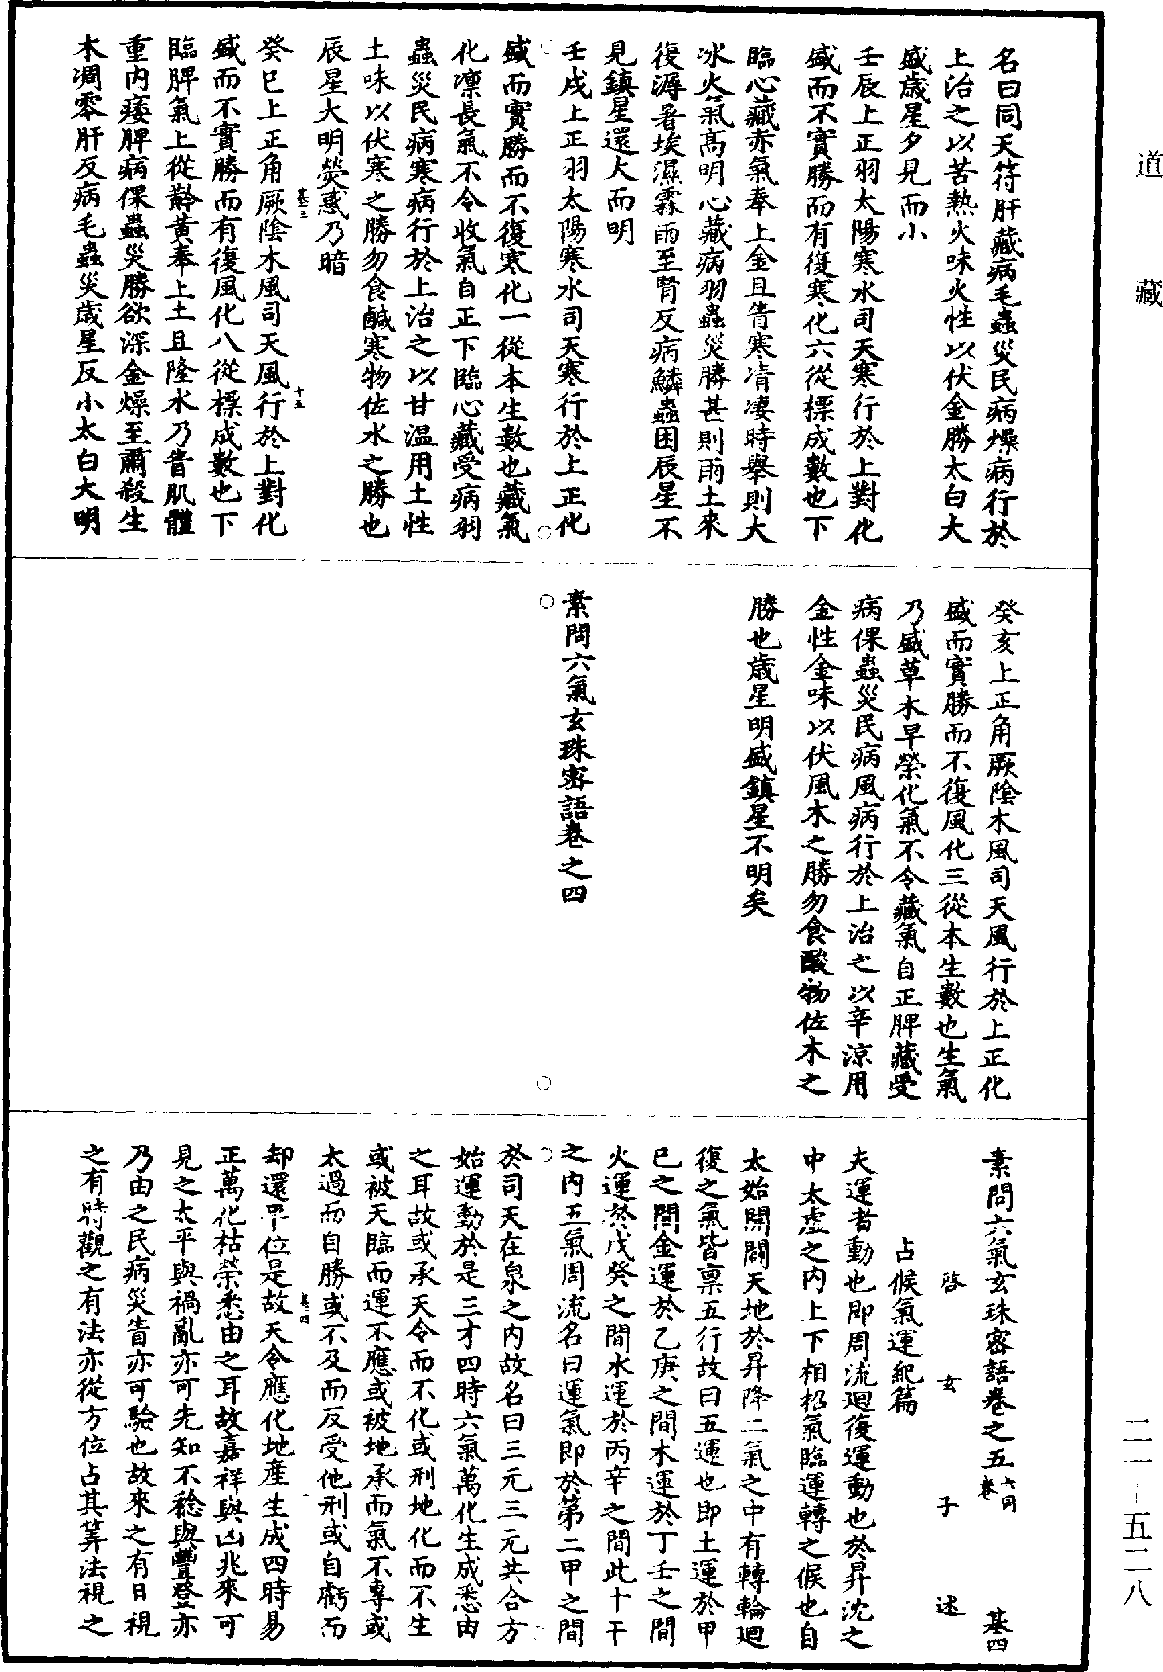 道藏
名曰同天符肝藏病毛蟲災民病燥病行於
上治之以苦熱火味火性以伏金勝太白大
盛歲星夕見而小
壬辰上正羽太陽寒水司天寒行於上對化
盛而不實勝而有復寒化六從標成數也下
臨心藏赤氣奉上金且眚寒凊凄時舉則大
冰火氣高明心藏病羽蟲災勝甚則雨土來
復溽暑埃濕霖雨至腎反病鱗蟲困辰星不
見鎮星還大而明
壬戌上正羽太陽寒水司天寒行於上正化
盛而實勝而不復寒化一從本生數也藏氣
化凜長氣不令收氣自正下臨心藏受病羽
蟲災民病寒病行於上治之以甘溫用土性
土味以伏寒之勝勿食鹹寒物佐水之勝也
辰星大明熒惑乃暗
癸巳上正角厥陰木風司天風行於上對化
盛而不實勝而有復風化八從標成數也下
臨脾氣上從齡黃奉上土且隆水乃眚肌體
重內痿脾病倮蟲災勝欲深金燥至肅殺生
木凋零肝反病毛蟲災歲星反小太白大明
癸亥上正角厥陰木風司天風行於上正化
盛而實勝而不復風化三從本生數也生氣
乃盛草木早榮化氣不令藏氣自正脾藏受
病倮蟲災民病風病行於上治之以辛涼用
金性金味以伏風木之勝勿食酸物佐木之
勝也歲星明盛鎮星不明矣
素問六氣玄珠密語卷之四
素問六氣玄珠密語卷之五 七同卷 基四
啓玄子述
占候氣運紀篇
夫運者動也即周流迴復運動也於昇沈之
中太虛之內上下相招氣臨運轉之候也自
太始開闢天地於昇降二氣之中有轉輪迴
復之氣皆稟五行故曰五運也即土運於甲
巳之間金運於乙庚之間木運於丁壬之間
火運於戊癸之間水運於丙辛之間此十干
之內五氣周流名曰運氣即於第二甲之間
於司天在泉之內故名曰三元三元共合方
始運動於是三才四時六氣萬化生成悉由
之耳故或承天令而不化或刑地化而不生
或被天臨而運不應或被地承而氣不專或
太過而自勝或不及而反受他刑或自虧而
却還平位是故天令應化地產生成四時易
正萬化枯榮悉由之耳故嘉祥與凶兆來可
見之太平與禍亂亦可先知不稔與豐登亦
乃由之民病災眚亦可驗也故來之有日視
之有時觀之有法亦從方位占其筭法視之
二一—五二八